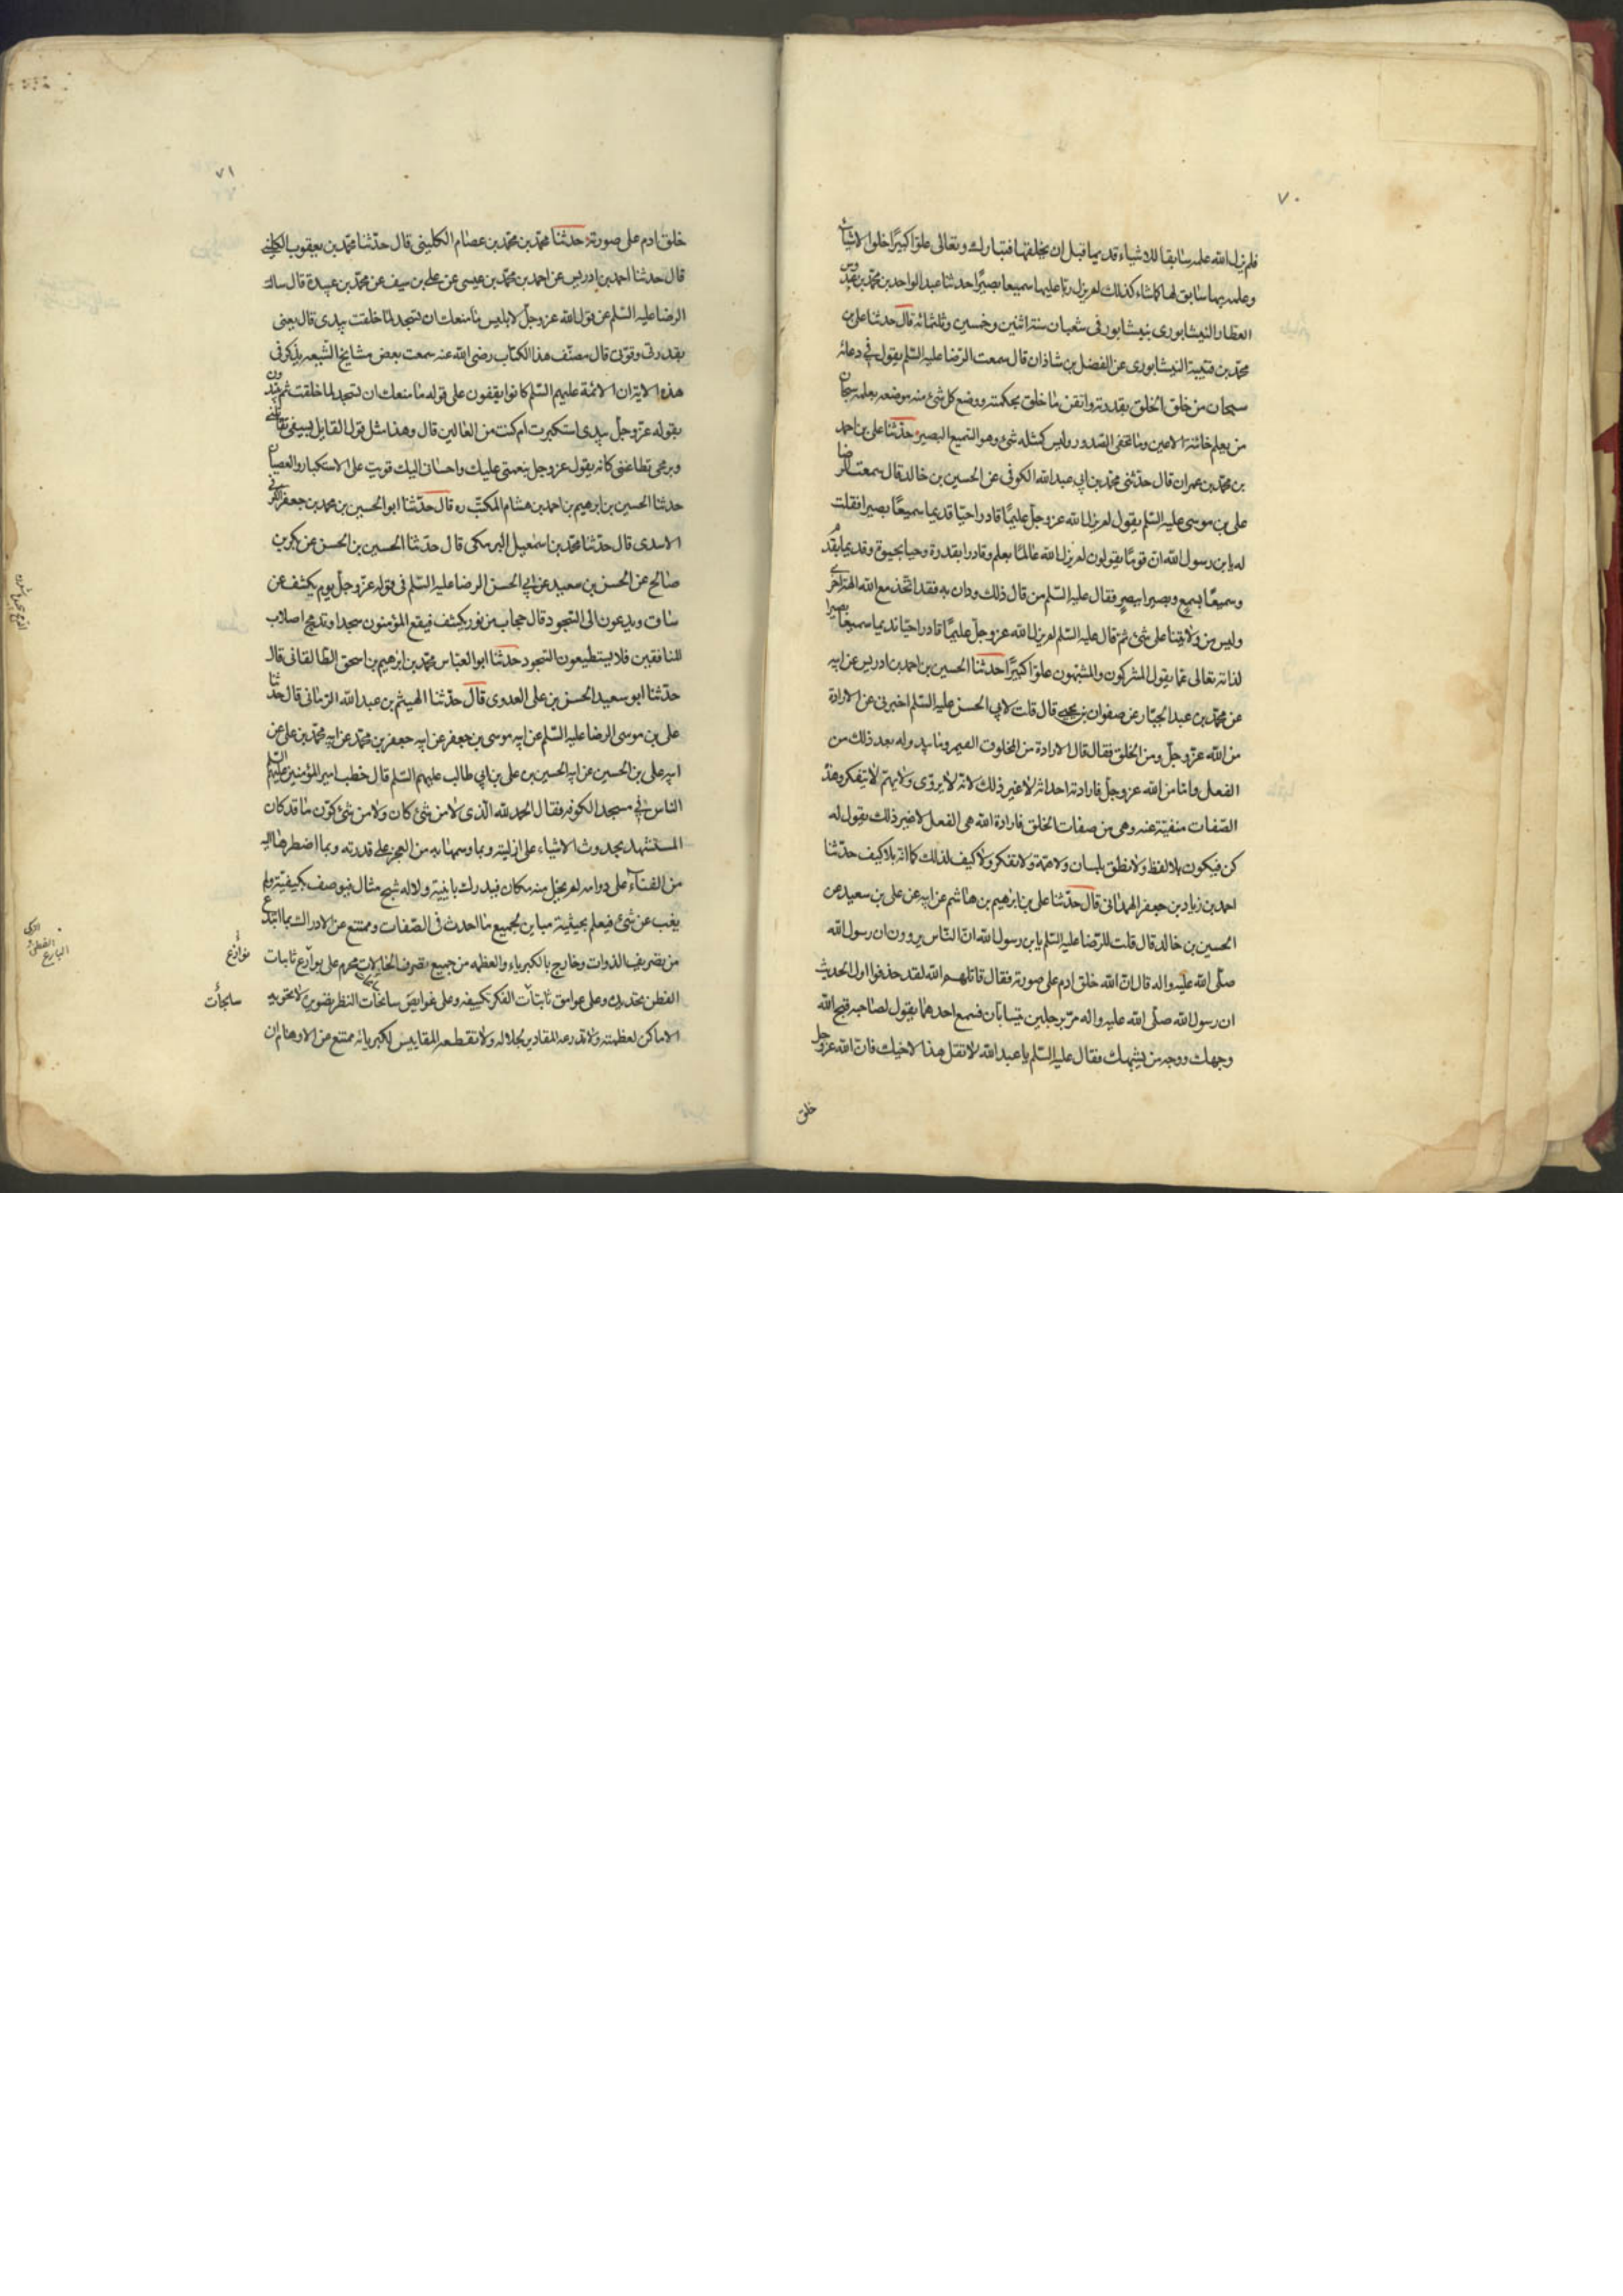 ٧٠
فلم يزل الله علمه سابقا للاشياء قديما قبل ان يخلقها فتبارك وتعالى علوّا كبيرًا خلق الاشياء
وعلمه بها سابق لها كما شاء كذلك لم يزل ربنا عليما سميعا بصيرًا حدثنا عبد الواحد بن محمّد بن عبدوس
العطار النيشابورى بنيشابور فى شعبان سنة اثنتين وخمسين وثلثمائة قال حدثنا على بن
محمّد بن قتيبة النيشابورى عن الفضل بن شاذان قال سمعت الرّضا عليه السّلم يقول فى دعائه
سبحان من خلق الخلق بقدرته واتقن ما خلق بحكمته ووضع كل شئ منه موضعه بعلمه سبحان
من يعلم خائنة الاعين وما تخفى الصّدور وليس كمثله شئ وهو السّميع البصير حدّثنا على بن احمد
بن محمّد بن عمران قال حدّثنى محمّد بن ابى عبد الله الكوفى عن الحسين بن خالد قال سمعت الرضا
على بن موسى عليه السّلم يقول لم يزل الله عزوجلّ عليمًا قادرا حيّا قديما سميعًا بصيرا فقلت
له يابن رسول الله ان قومًا يقولون لم يزل الله عالمًا بعلم وقادرا بقدرة وحيا بحيوة وقديما بقدم
وسميعًا بسمع وبصيرا ببصر فقال عليه السّلم من قال ذلك ودان به فقد اتّخذ مع الله الهة اخرى
وليس من ولايتنا على شئ ثمّ قال عليه السّلم لم يزل الله عزوجلّ عليمًا قادرا حيّا قديما سميعا بصيرا
لذاته تعالى عمّا يقول المشركون والمشبّهون علوّا كبيرًا حدثنا الحسين بن احمد بن ادريس عن ابيه
عن محمّد بن عبد الجبّار عن صفوان بن يحيى قال قلت لابى الحسن عليه السّلم اخبرنى عن الارادة
من الله عزّوجلّ ومن الخلق فقال قال الارادة من المخلوق الضمير وما يبدو له بعد ذلك من
الفعل وامّا من الله عزوجلّ فارادته احداثه لا غير ذلك لانه لا يروّى ولا يهتمّ لا يتفكر وهذه
الصّفات منفيّة عنه وهى من صفات الخلق فارادة الله هى الفعل لا غير ذلك يقول له
كن فيكون بلا لفظ ولا نطق بلسان ولا همّة ولا تفكر ولا كيف لذلك كما انّه بلا كيف حدّثنا
احمد بن زياد بن جعفر الهمدانى قال حدّثنا على بن ابرهيم بن هاشم عن ابيه عن على بن سعيد عن
الحسين بن خالد قال قلت للرّضا عليه السّلم يابن رسول الله انّ النّاس يروون ان رسول الله
صلّى الله عليه واله قال انّ الله خلق ادم على صورته فقال قاتلهم الله لقد حذفوا اول الحديث
ان رسول الله صلّى الله عليه واله مرّ برجلين يتسابّان فسمع احدهما يقول لصاحبه قبح الله
وجهك ووجه من يشبهك فقال عليه السّلم يا عبد الله لا تقل هذا لاخيك فانّ الله عزوجل
خلق
٧١
خلق ادم على صورته حدثنا محمّد بن محمّد بن عصام الكلينى قال حدّثنا محمّد بن يعقوب الكلينى
قال حدثنا احمد بن ادريس عن احمد بن محمّد بن عيسى عن على بن سيف عن محمّد بن عبيدة قال سالت
الرضا عليه السّلم عن قول الله عزوجلّ لابليس ما منعك ان تسجد لما خلقت بيدى قال يعنى
بقدرتى وقوّتى قال مصنّف هذا الكتاب رضى الله عنه سمعت بعض مشايخ الشّيعه يذكر فى
هذه الاية ان الائمة عليهم السّلم كانوا يقفون على قوله ما منعك ان تسجد لما خلقت ثم يبتدون
بقوله عزّوجلّ بيدى استكبرت ام كنت من العالين قال وهذا مثل قول القايل بسيفى تقاتلنى
وبرمحى تطاعننى كانه يقول عزوجل بنعمتى عليك واحسانى اليك قويت على الاستكبار والعصيان
حدثنا الحسين بن ابرهيم بن احمد بن هشام المكتب ره قال حدّثنا ابو الحسين بن محمد بن جعفر الكوفى
الاسدى قال حدّثنا محمّد بن اسمعيل البرمكى قال حدّثنا الحسين بن الحسن عن بكر بن
صالح عن الحسن بن سعيد عن ابى الحسن الرضا عليه السّلم فى قوله عزّوجلّ يوم يكشف عن
ساق ويدعون الى السّجود قال حجاب من نور يكشف فيقع المؤمنون سجدا وتدمج اصلاب
المنافقين فلا يستطيعون السّجود حدثنا ابو العبّاس محمّد بن ابرهيم بن اسحق الطالقانى قال
حدّثنا ابو سعيد الحسن بن على العدوى قال حدّثنا الهيثم بن عبد الله الرّمانى قال حدثنا
على بن موسى الرضا عليه السّلم عن ابيه موسى بن جعفر عن ابيه جعفر بن محمّد عن ابيه محمّد بن على عن
ابيه على بن الحسين عن ابيه الحسين بن على بن ابى طالب عليهم السّلم قال خطب امير المؤمنين عليهم السلم
النّاس فى مسجد الكوفه فقال الحمد لله الّذى لا من شئ كان ولا من شئ كوّن ما قد كان
المستشهد بحدوث الاشياء على ازليته وبما وسمها به من العجز على قدرته وبما اضطرها اليه
من الفناء على دوامه لم يخل منه مكان فيدرك باينية ولا له شبح مثال فيوصف بكيفيّة ولم
يغب عن شئ فيعلم بحيثية مباين لجميع ما احدث فى الصّفات وممتنع عن الادراك بما ابتدع
من تصريف الذوات وخارج بالكبرياء والعظمه من جميع تصرف الحالات محرم على بوارع ثاقبات
الفطن تحديده وعلى عوامق ثابتات الفكر تكييفه وعلى غوايص سابحات النظر تصويره لا تحويه
الاماكن لعظمته ولا تذرعه المقادير لجلاله ولا تقطعه المقاييس لكبريائه ممتنع عن الاوهام ان
نوازع
سابحات